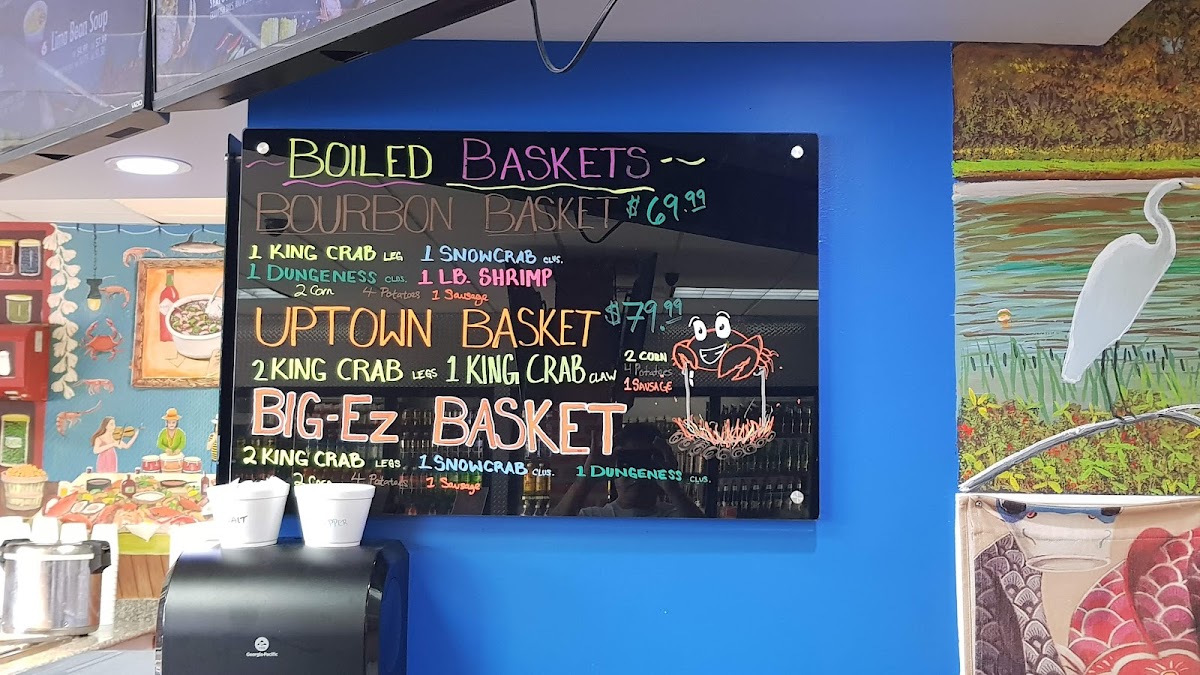 Lima Bean Soup
VIZIO
~ BOILED BASKETS -~
BOURBON BASKET $69.99
1 KING CRAB LEG 1 SNOWCRAB CLUS.
1 DUNGENESS CLUS. 1 LB. SHRIMP
2 Corn 4 Potatoes 1 Sausage
UPTOWN BASKET $79.99
2 KING CRAB LEGS 1 KING CRAB CLAW
2 CORN
4 Potatoes
1 SAUSAGE
BIG-Ez BASKET
2 KING CRAB LEGS 1 SNOWCRAB CLUS. 1 DUNGENESS CLUS.
2 Corn 4 Potatoes 1 Sausage
Georgia-Pacific